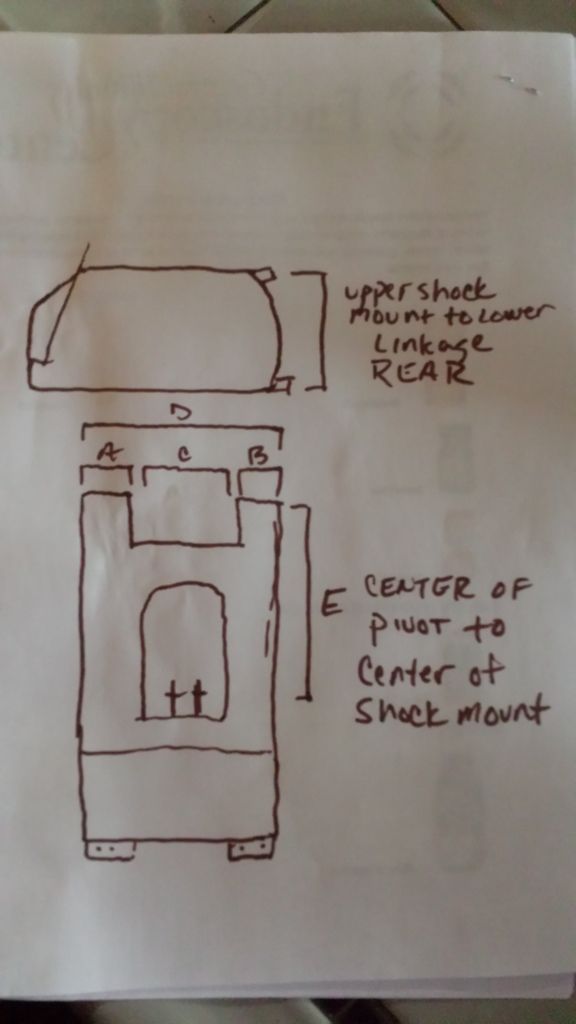 upper shock
mount to Lower
Linkage
REAR
D
A C B
E CENTER OF
PIVOT to
Center of
Shock mount